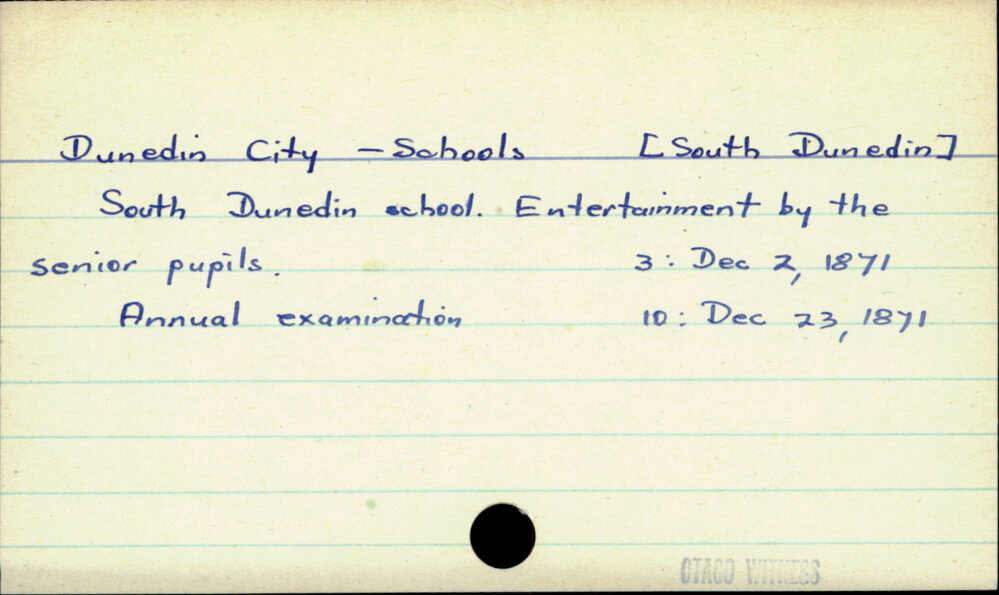 Dunedin City - Schools [South Dunedin]
South Dunedin school. Entertainment by the
senior pupils. 3: Dec 2, 1871
Annual examination 10: Dec 23, 1871
OTAGO WITNESS